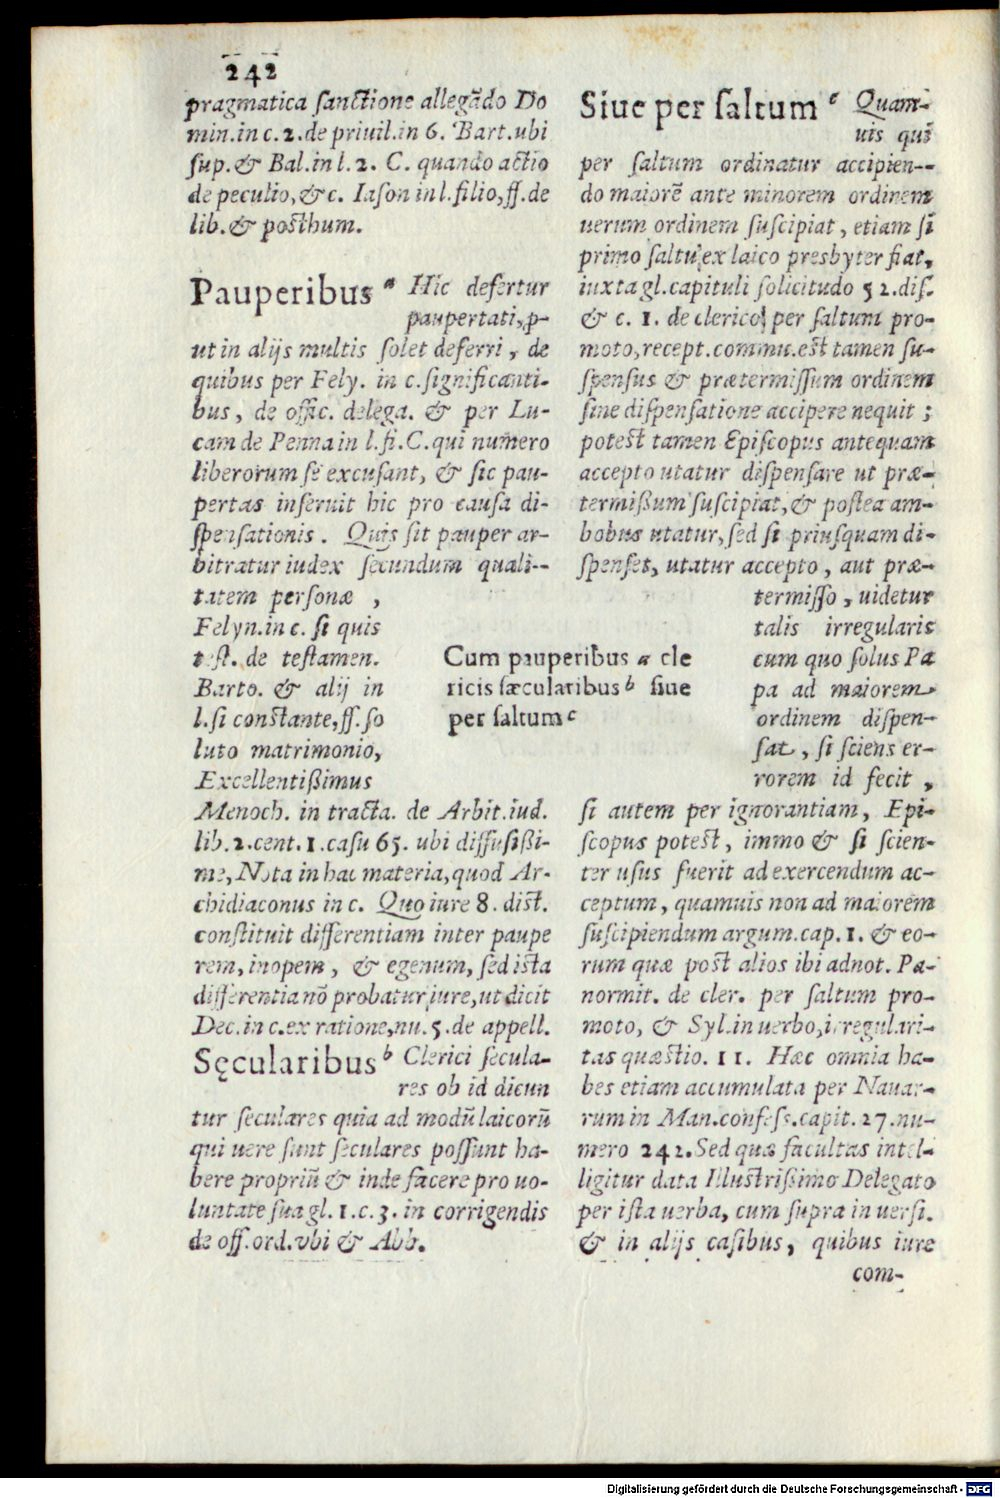 242
pragmatica sanctione allegãdo Do
min. in c. 2. de priuil. in 6. Bart. ubi
sup. & Bal. in l. 2. C. quando actio
de peculio, & c. Iason in l. filio, ff. de
lib. & posthum.
Pauperibus a Hic defertur
paupertati, p-
ut in alijs multis solet deferri, de
quibus per Fely. in c. significanti-
bus, de offic. delega. & per Lu-
cam de Penna in l. fi. C. qui numero
liberorum se excusant, & sic pau-
pertas inseruit hic pro causa di-
spensationis. Quis sit pauper ar-
bitratur iudex secundum quali--
tatem personæ ,
Felyn. in c. si quis
test. de testamen.
Barto. & alij in
l. si constante, ff. so
luto matrimonio,
Excellentißimus
Menoch. in tracta. de Arbit. iud.
lib. 2. cent. 1. casu 65. ubi diffusißi-
me, Nota in hac materia, quod Ar-
chidiaconus in c. Quo iure 8. dist.
constituit differentiam inter paupe
rem, inopem, & egenum, sed ista
differentia nõ probatur iure, ut dicit
Dec. in c. ex ratione, nu. 5. de appell.
Sęcularibus b Clerici secula-
res ob id dicun
tur seculares quia ad modũ laicorũ
qui uere sunt seculares possunt ha-
bere propriũ & inde facere pro uo-
luntate sua gl. 1. c. 3. in corrigendis
de off. ord. vbi & Abb.
Cum pauperibus a cle
ricis sæcularibus b siue
per saltum c
Siue per saltum c Quam-
uis qui
per saltum ordinatur accipien--
do maiorẽ ante minorem ordinem
uerum ordinem suscipiat, etiam si
primo saltu ex laico presbyter fiat,
iuxta gl. capituli solicitudo 52. dis.
& c. 1. de clerico per saltum pro-
moto, recept. commu. est tamen su-
spensus & prætermissum ordinem
sine dispensatione accipere nequit ;
potest tamen Episcopus antequam
accepto utatur dispensare ut præ-
termißum suscipiat, & postea am-
bobus utatur, sed si priusquam di-
spenset, utatur accepto, aut præ-
termisso, uidetur
talis irregularis
cum quo solus Pa
pa ad maiorem
ordinem dispen-
sat, si sciens er-
rorem id fecit ,
si autem per ignorantiam, Epi-
scopus potest, immo & si scien-
ter usus fuerit ad exercendum ac-
ceptum, quamuis non ad maiorem
suscipiendum argum. cap. 1. & eo-
rum quæ post alios ibi adnot. Pa-
normit. de cler. per saltum pro-
moto, & Syl. in uerbo, irregulari-
tas quæstio. 11. Hæc omnia ha-
bes etiam accumulata per Nauar-
rum in Man. confess. capit. 27. nu-
mero 242. Sed quæ facultas intel-
ligitur data Illustrißimo Delegato
per ista uerba, cum supra in uersi.
& in alijs casibus, quibus iure
com-
Digitalisierung gefördert durch die Deutsche Forschungsgemeinschaft - DFG